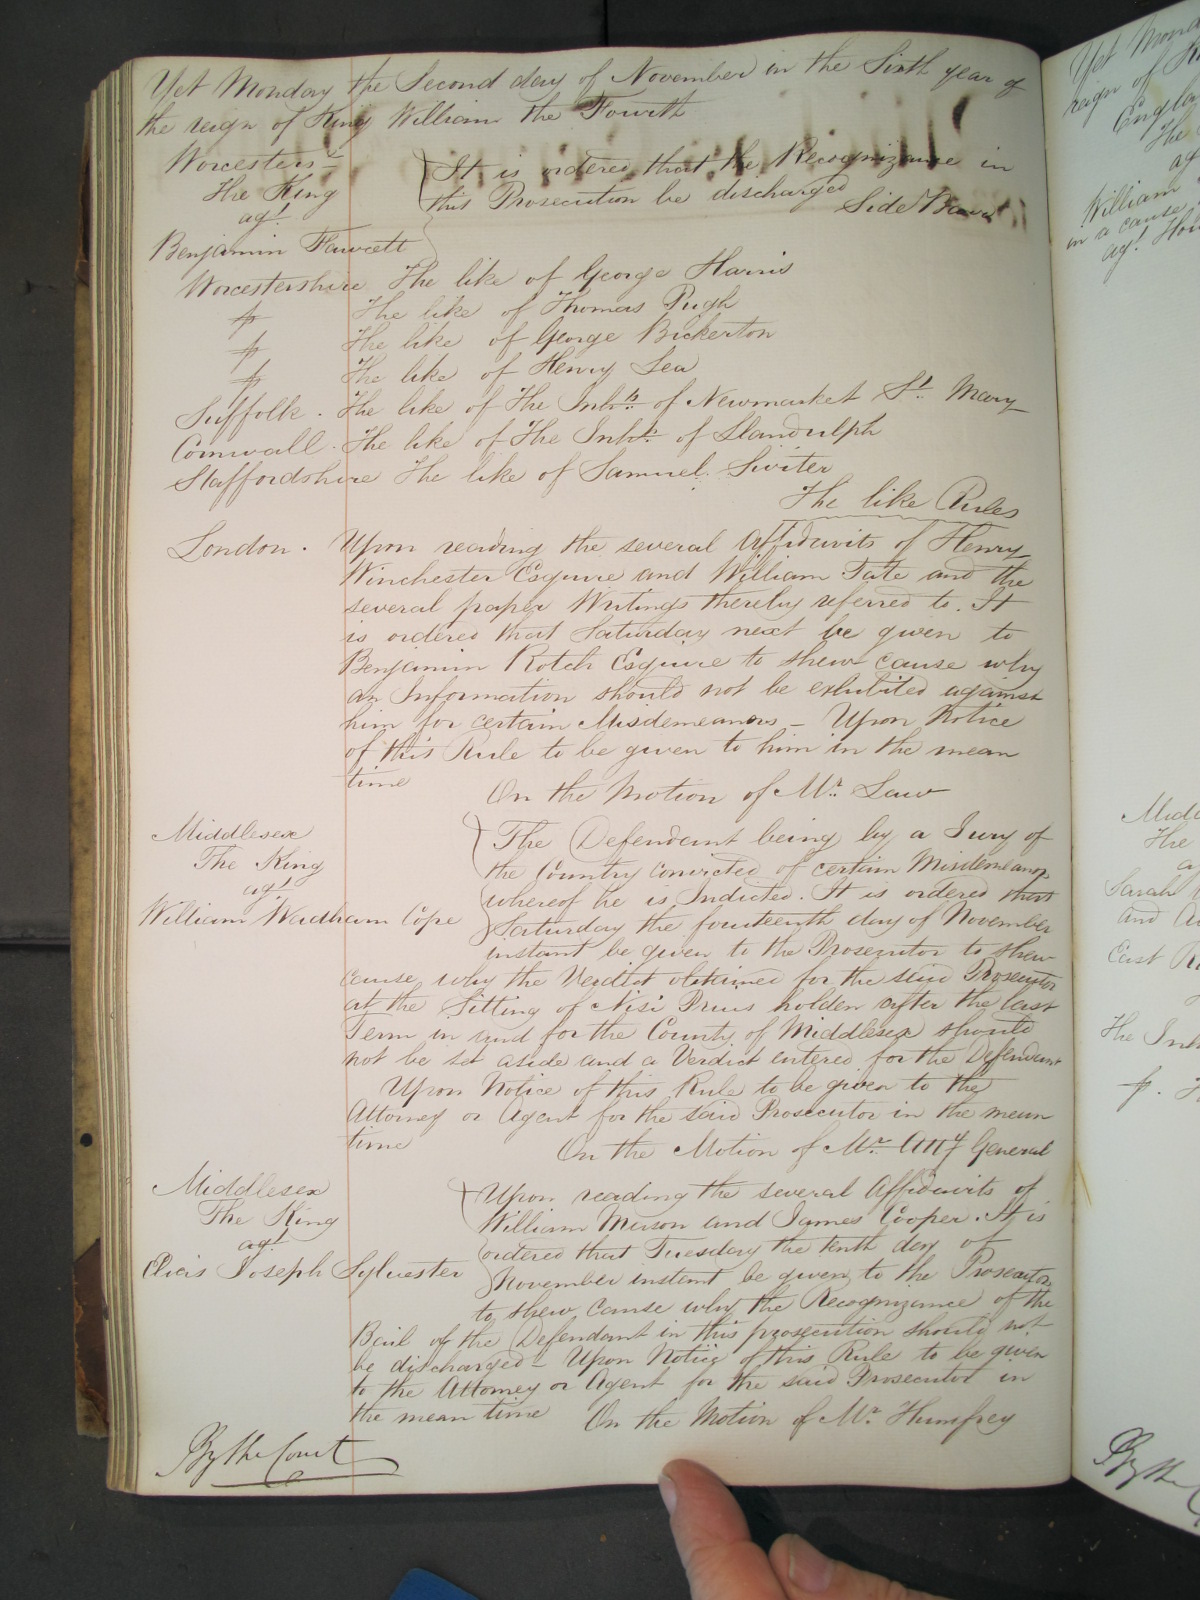 Yet Monday the Second day of November in the Sixth year of
the reign of King William the Fourth
Worcesters:
The King
agt
Benjamin Fawcett
It is ordered that the Recognizance in
this Prosecution be discharged
Side Bar
Worcestershire The like of George Harris
The like of Thomas Pugh
The like of George Bickerton
The like of Henry Lea
Suffolk. The like of The Inhts. of Newmarket St. Mary
Cornwall. The like of The Inhts. of Llandulph
Staffordshire The like of Samuel Siviter
The like Rules
London. Upon reading the several Affidavits of Henry
Winchester Esquire and William Tate and the
several paper Writings thereby referred to. It
is ordered that Saturday next be given to
Benjamin Rotch Esquire to shew cause why
an Information should not be exhibited against
him for certain Misdemeanors – Upon Notice
of this Rule to be given to him in the mean
time
On the Motion of Mr. Law
Middlesex
The King
agt
William Wadham Cope
The Defendant being by a Jury of
the Country convicted of certain Misdemeanors
whereof he is Indicted. It is ordered that
Saturday the fourteenth day of November
instant be given to the Prosecutor to shew
cause why the Verdict obtained for the said Prosecutor
at the Sitting of Nisi Prius holden after the last
Term in and for the County of Middlesex should
not be set aside and a Verdict entered for the Defendant
Upon Notice of this Rule to be given to the
Attorney or Agent for the said Prosecutor in the mean
time
On the Motion of Mr. Atty General
Middlesex
The King
agt
Elias Joseph Sylvester
Upon reading the several Affidavits of
William Mason and James Cooper. It is
ordered that Tuesday the tenth day of
November instant be given to the Prosecutor
to shew cause why the Recognizance of the
Bail of the Defendant in this prosecution should not
be discharged – Upon Notice of this Rule to be given
to the Attorney or Agent for the said Prosecutor in
the mean time On the Motion of Mr. Humfrey
By the Court
Yet Mond
reign of
The
William
in a cause
agt.
The
Sarah
and
East
The Inh
By the C